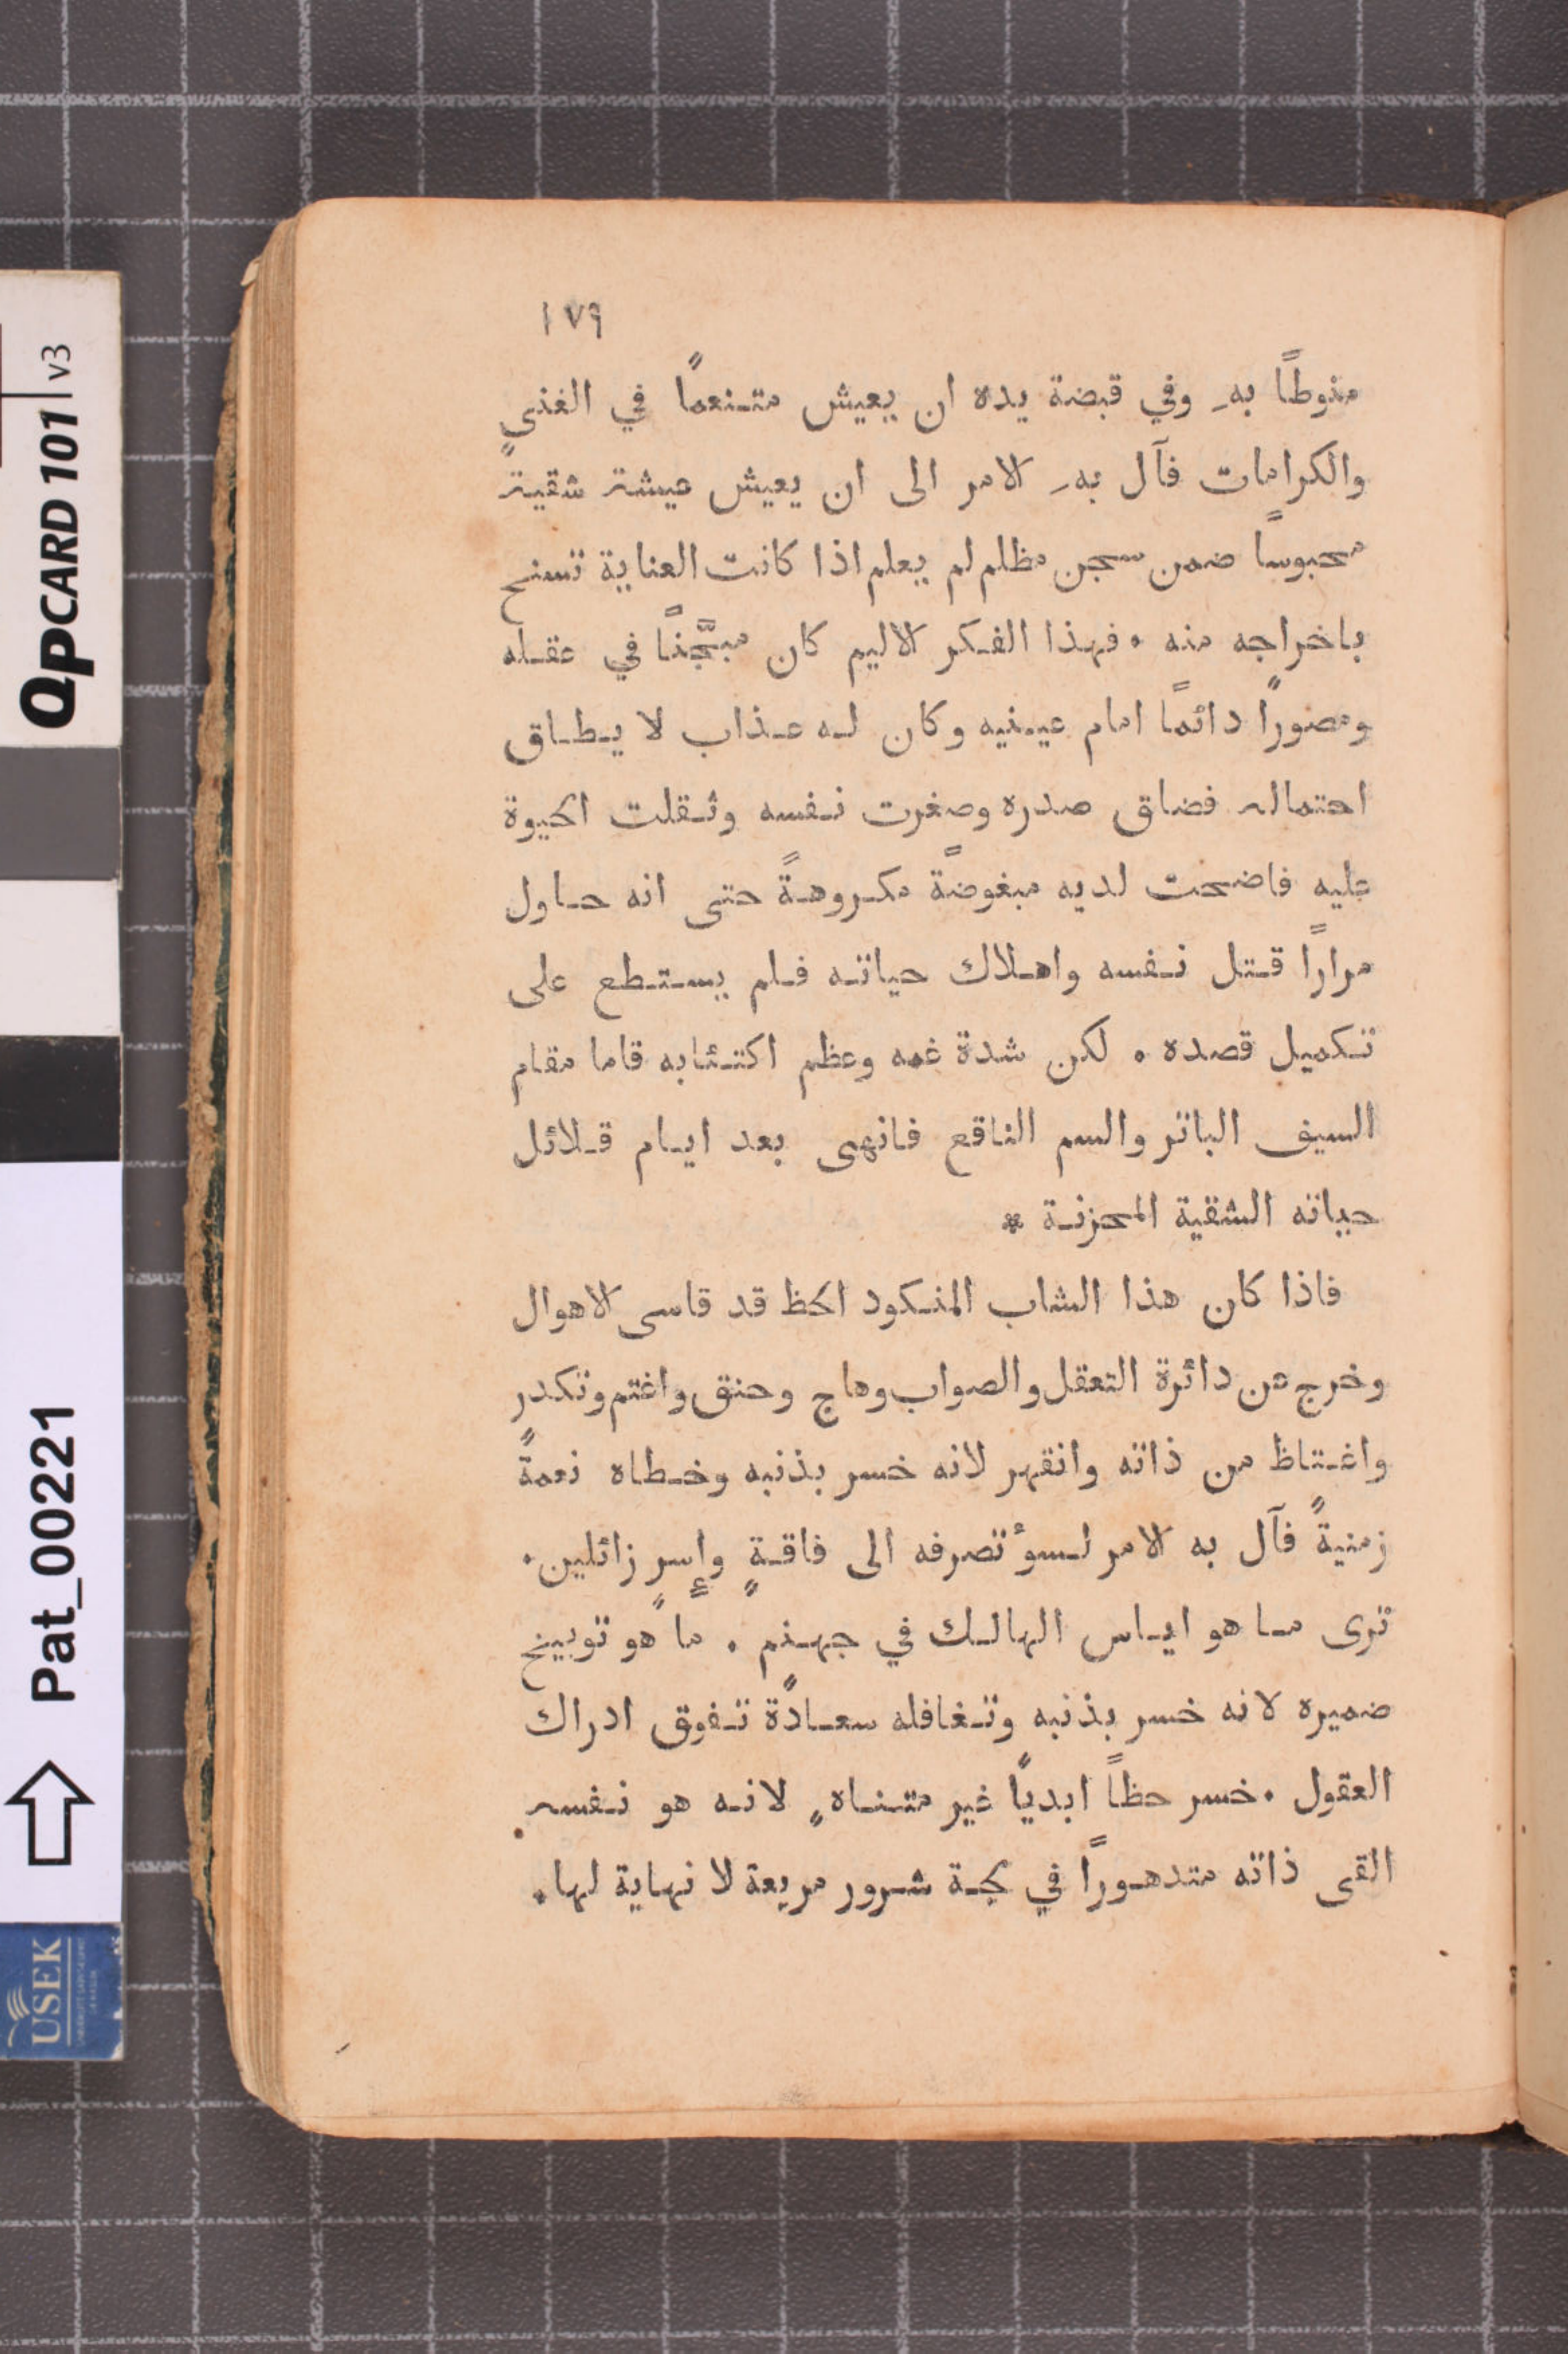 ١٧٩
منوطًا بهِ وفي قبضة يده ان يعيش متنعمًا في الغنى
والكرامات فآل بهِ الامر الى ان يعيش عيشة شقيةً
محبوسًا ضمن سجن مظلم لم يعلم اذا كانت العناية تسنح
باخراجه منه . فهذا الفكر الاليم كان مبجَّنًا في عقله
ومصورًا دائمًا امام عينيه وكان له عذاب لا يطاق
احتماله فضاق صدره وصغرت نفسه وثقلت الحيوة
عليه فاضحت لديه مبغوضةً مكروهةً حتى انه حاول
مرارًا قتل نفسه واهلاك حياته فلم يستطع على
تكميل قصده . لكن شدة غمه وعظم اكتئابه قاما مقام
السيف الباتر والسم الناقع فانهى بعد ايام قلائل
حياته الشقية المحزنة *
فاذا كان هذا الشاب المنكود الحظ قد قاسى الاهوال
وخرج من دائرة التعقل والصواب وهاج وحنق واغتم وتكدر
واغتاظ من ذاته وانقهر لانه خسر بذنبه وخطاه نعمةً
زمنيةً فآل به الامر لسوٴ تصرفه الى فاقةٍ وإسرٍ زائلين .
ترى ما هو اياس الهالك في جهنم . ما هو توبيخ
ضميره لانه خسر بذنبه وتغافله سعادةً تفوق ادراك
العقول . خسر حظاً ابديًا غير متناهٍ لانه هو نفسه
القى ذاته متدهورًا في لجة شرور مريعة لا نهاية لها .
QPCARD 101 v3
Pat_00221
USEK